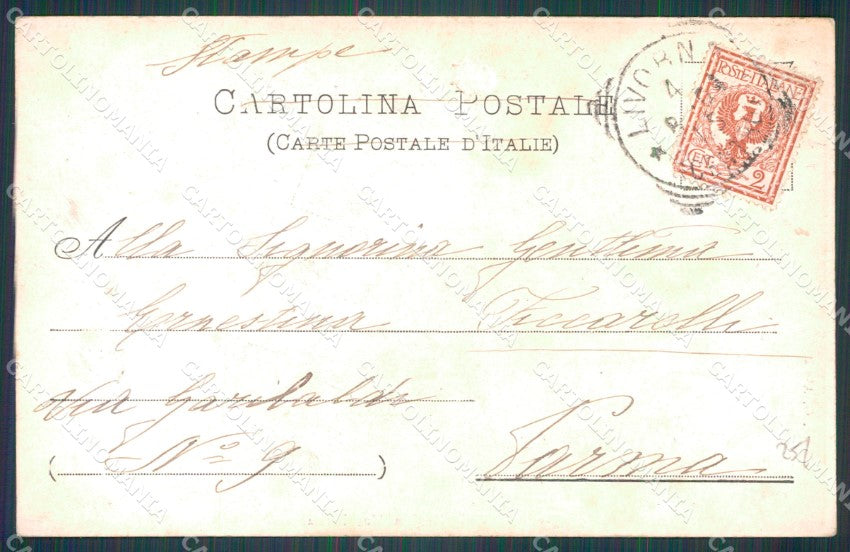 Stampe
CARTOLINA POSTALE
(CARTE POSTALE D'ITALIE)
LIVORN
POSTE ITALIANE
CENT. 2
Alla Signorina Gentilima
Ernestina
Via Garibaldi
N° 9
Parma
252
CARTOLINOMANIA